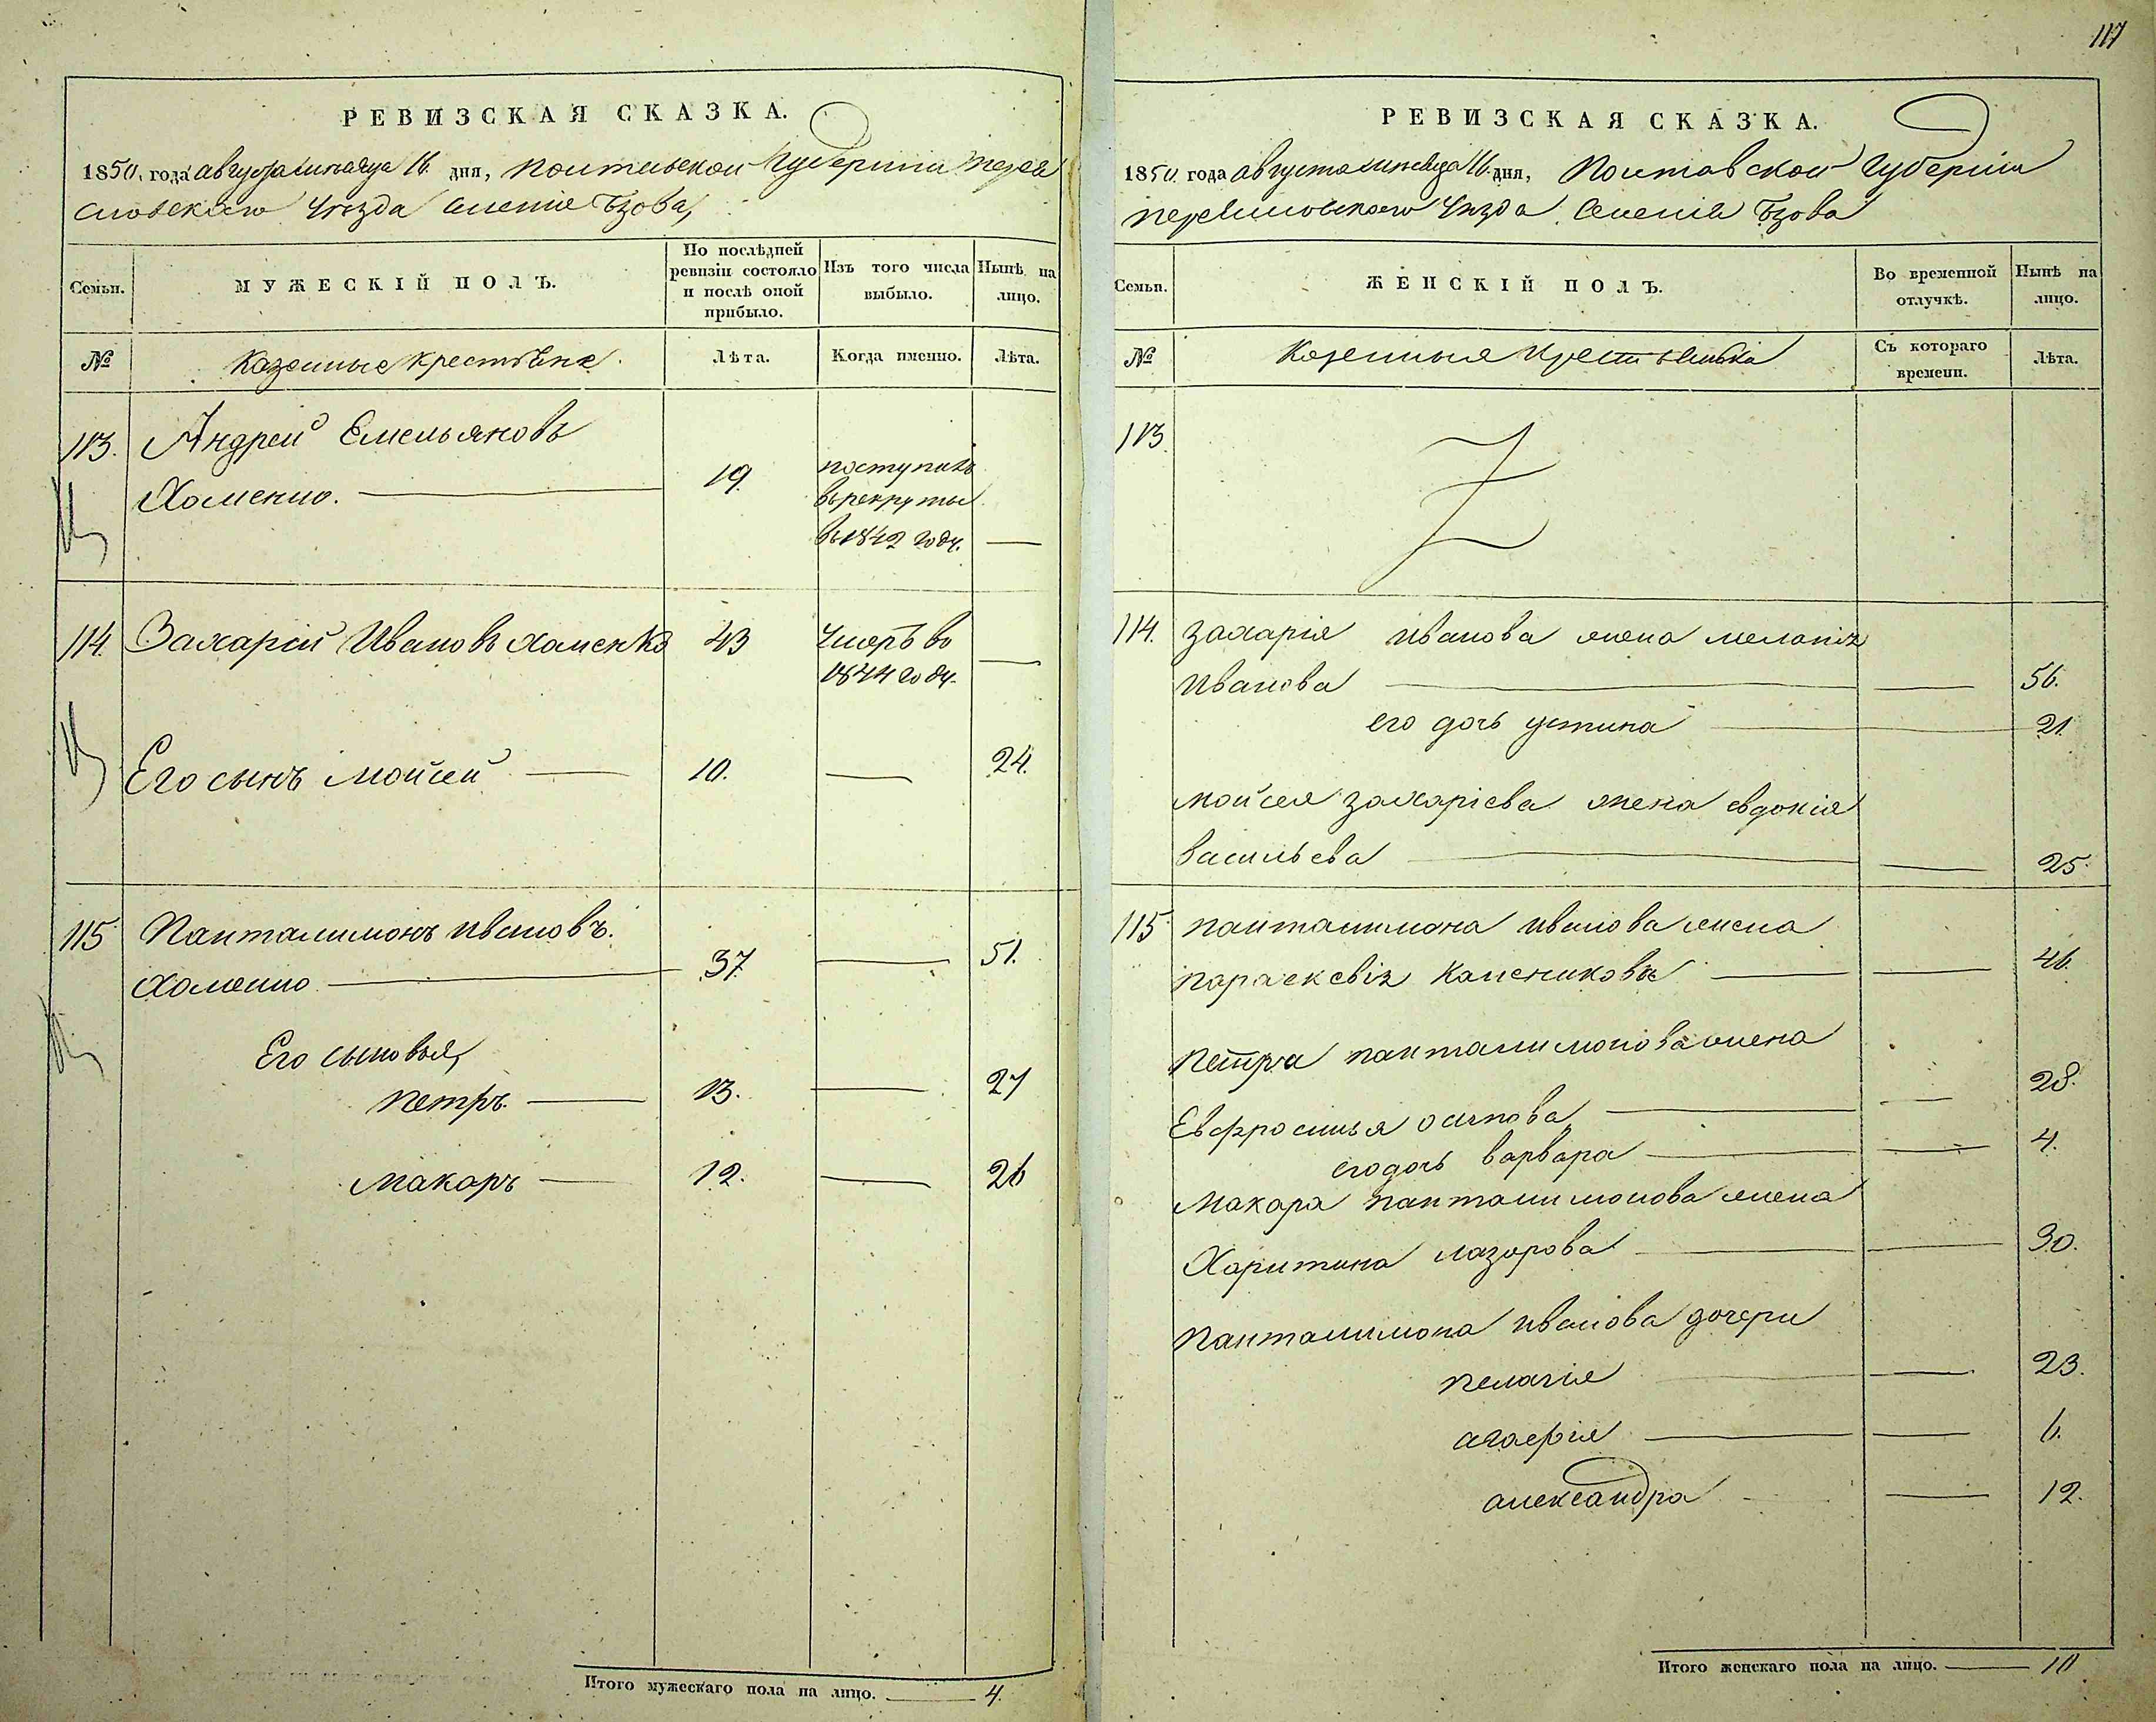 117
РЕВИЗСКАЯ СКАЗКА.
1850. года августа месяца 16. дня, Полтавской Губерніи Перея
словскаго Уѣзда селеніе Бзова,
Семьи.
МУЖЕСКІЙ ПОЛЪ.
По послѣдней ревизіи состояло и послѣ оной прибыло.
Изъ того числа выбыло.
Нынѣ на лицо.
№
Казенные крестьяне.
Лѣта.
Когда именно.
Лѣта.
113. Андрей Емельяновъ
Хоменко. 19. поступилъ
въ рекруты
въ 1842 году.
114. Захарій Ивановъ Хоменко 43 Умеръ въ
1844 году.
Его сынъ Мойсей 10. 24.
115 Панталимонъ Ивановъ.
Хоменко 37. 51.
Его сыновья,
Петръ. 13. 27
Макаръ 12. 26
Итого мужескаго пола на лицо. 4.
РЕВИЗСКАЯ СКАЗКА.
1850 года августа месяца 16. дня, Полтавской Губерніи
Переяславскаго Уѣзда Селенія Бзова
Семьи.
ЖЕНСКІЙ ПОЛЪ.
Во временной отлучкѣ.
Нынѣ на лицо.
№
Казенныя
Съ котораго времени.
Лѣта.
113
114. Захарія Иванова жена Меланія
Иванова 56.
его дочь Устина 21
Мойсея Захаріева жена Евдокія
Васильева 25.
115. Панталимона Иванова жена
Параскевія 46.
Петра Панталимонова жена
Евфросинья Осипова 28.
его дочь Варвара 4.
Макара Панталимонова жена
Харитина Лазорова 30.
Панталимона Иванова дочери
Пелагія 23.
Агафія 6.
Александра 12.
Итого женскаго пола на лицо. 10